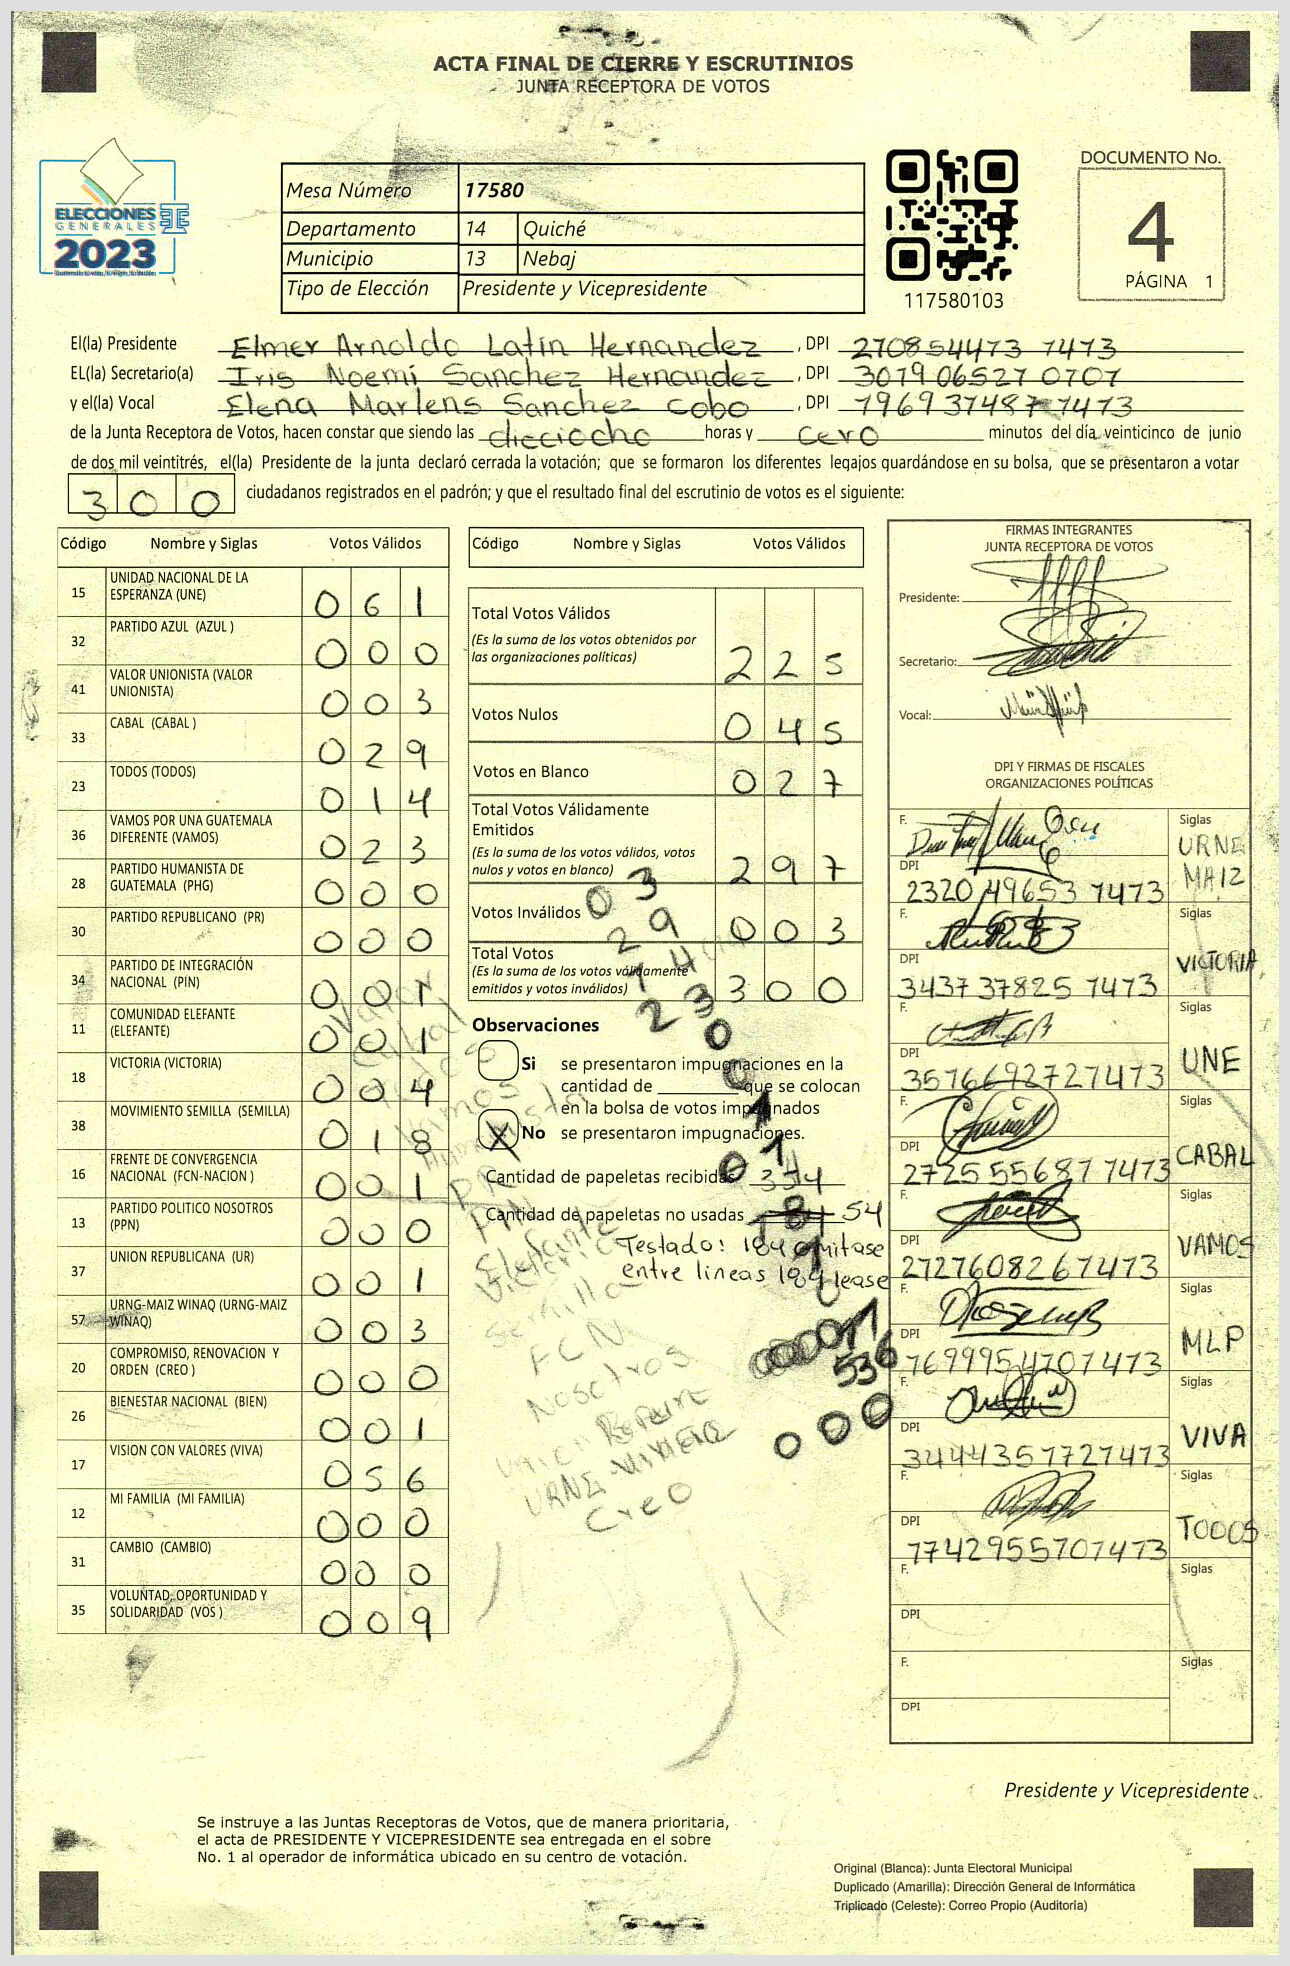 ACTA FINAL DE CIERRE Y ESCRUTINIOS
JUNTA RECEPTORA DE VOTOS
ELECCIONES
GENERALES
2023
Mesa Número 17580
Departamento 14 Quiché
Municipio 13 Nebaj
Tipo de Elección Presidente y Vicepresidente
117580103
DOCUMENTO No.
4
PÁGINA 1
El(la) Presidente Elmer Arnoldo Latín Hernandez, DPI 270854473 7473
EL(la) Secretario(a) Iris Noemi Sanchez Hernandez, DPI 3079 06527 0707
y el(la) Vocal Elena Marlens Sanchez Cobo, DPI 7969 37487 7473
de la Junta Receptora de Votos, hacen constar que siendo las dieciocho horas y cero minutos del día veinticinco de junio
de dos mil veintitrés, el(la) Presidente de la junta declaró cerrada la votación; que se formaron los diferentes legajos guardándose en su bolsa, que se presentaron a votar
300 ciudadanos registrados en el padrón; y que el resultado final del escrutinio de votos es el siguiente:
Código Nombre y Siglas Votos Válidos
15 UNIDAD NACIONAL DE LA
ESPERANZA (UNE) 061
32 PARTIDO AZUL (AZUL ) 000
41 VALOR UNIONISTA (VALOR
UNIONISTA) 003
33 CABAL (CABAL ) 029
23 TODOS (TODOS) 014
36 VAMOS POR UNA GUATEMALA
DIFERENTE (VAMOS) 023
28 PARTIDO HUMANISTA DE
GUATEMALA (PHG) 000
30 PARTIDO REPUBLICANO (PR) 000
34 PARTIDO DE INTEGRACIÓN
NACIONAL (PIN) 001
11 COMUNIDAD ELEFANTE
(ELEFANTE) 001
18 VICTORIA (VICTORIA) 004
38 MOVIMIENTO SEMILLA (SEMILLA) 018
16 FRENTE DE CONVERGENCIA
NACIONAL (FCN-NACION ) 001
13 PARTIDO POLITICO NOSOTROS
(PPN) 000
37 UNION REPUBLICANA (UR) 001
57 URNG-MAIZ WINAQ (URNG-MAIZ
WINAQ) 003
20 COMPROMISO, RENOVACION Y
ORDEN (CREO ) 000
26 BIENESTAR NACIONAL (BIEN) 001
17 VISION CON VALORES (VIVA) 056
12 MI FAMILIA (MI FAMILIA) 000
31 CAMBIO (CAMBIO) 000
35 VOLUNTAD, OPORTUNIDAD Y
SOLIDARIDAD (VOS ) 009
Código Nombre y Siglas Votos Válidos
Total Votos Válidos
(Es la suma de los votos obtenidos por
las organizaciones políticas) 225
Votos Nulos 045
Votos en Blanco 027
Total Votos Válidamente
Emitidos
(Es la suma de los votos válidos, votos
nulos y votos en blanco) 297
Votos Inválidos 003
Total Votos
(Es la suma de los votos válidamente
emitidos y votos inválidos) 300
Observaciones
Si se presentaron impugnaciones en la
cantidad de que se colocan
en la bolsa de votos impugnados
X No se presentaron impugnaciones.
Cantidad de papeletas recibidas 354
Cantidad de papeletas no usadas 54
Testado: 184 omitase
entre lineas 184 lease
Valor
Cabal
Vamos
Humanista
PR
PIN
Elefante
Victoria
Semilla
FCN
Nosotros
Creo
FIRMAS INTEGRANTES
JUNTA RECEPTORA DE VOTOS
Presidente:
Secretario:
Vocal:
DPI Y FIRMAS DE FISCALES
ORGANIZACIONES POLÍTICAS
F. Siglas
URNG
MAIZ
DPI
2320 49653 7473
F. Siglas
VICTORIA
DPI
3437 37825 7473
F. Siglas
UNE
DPI
3576692727473
F. Siglas
CABAL
DPI
2725 55687 7473
F. Siglas
VAMOS
DPI
2727608267473
F. Siglas
MLP
DPI
7699954707473
F. Siglas
VIVA
DPI
3444357727473
F. Siglas
TODOS
DPI
7742955707473
F. Siglas
DPI
F. Siglas
DPI
Presidente y Vicepresidente
Se instruye a las Juntas Receptoras de Votos, que de manera prioritaria,
el acta de PRESIDENTE Y VICEPRESIDENTE sea entregada en el sobre
No. 1 al operador de informática ubicado en su centro de votación.
Original (Blanca): Junta Electoral Municipal
Duplicado (Amarilla): Dirección General de Informática
Triplicado (Celeste): Correo Propio (Auditoría)